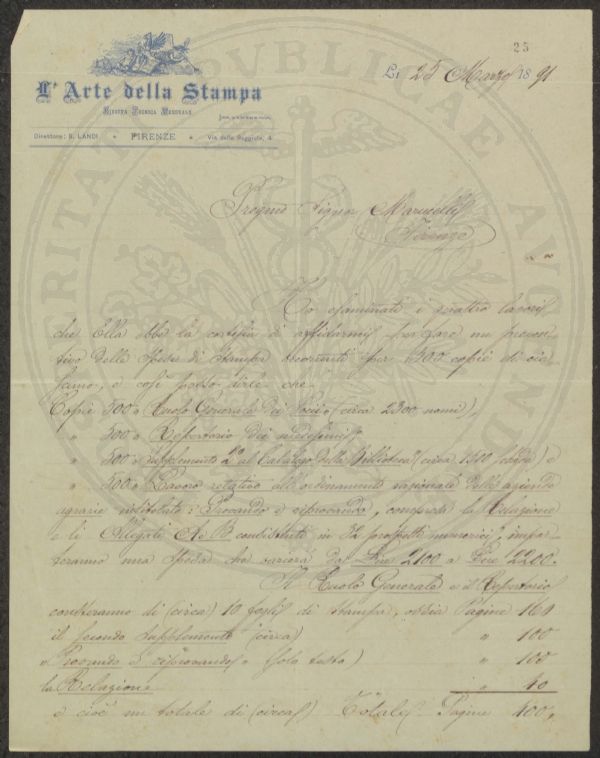 25
Lì 25 Marzo 1891
L'Arte della Stampa
Rivista Tecnica Mensuale
Direttore: S. LANDI • FIRENZE • Via delle Seggiole, 4
Pregmo Signor Marucelli
Firenze
Ho esaminati i quattro lavori
che Ella ebbe la cortesia di affidarmi per fare un preven-
tivo delle spese di stampa occorrenti per 500 copie di cia-
scuno, e così posso dirle che
Copie 500 Ruolo Generale dei Socii (circa 2300 nomi),
" 500 Repertorio dei medesimi,
" 500 Supplemento 2º al Catalogo della Biblioteca (circa 1400 ) e
" 500 Lavoro relativo all'ordinamento razionale delle aziende
agrarie intitolato: Provando e riprovando, compresa la Relazione
e li Allegati A e B consistenti in 32 prospetti numerici, impor-
teranno una spesa che varierà da Lire 2100 a Lire 2200.
Il Ruolo Generale e il Repertorio
conteranno di (circa) 10 fogli di stampa, ossia Pagine 160
il secondo Supplemento (circa) " 100
" Provando e riprovando " (solo testo) " 100
la Relazione " 40
e cioè un totale di (circa) Totale Pagine 400,